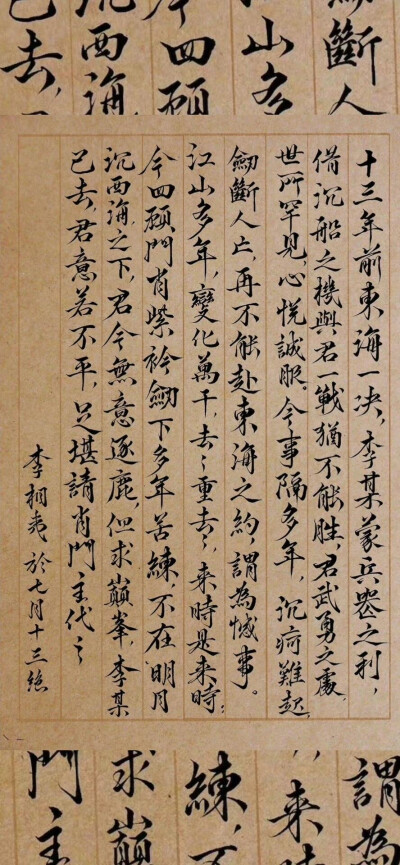 斷人
山多
今四顧
沉西海
已去，
十三年前東海一决，李某蒙兵器之利，
借沉船之機與君一戰猶不能勝，君武勇之處，
世所罕見，心悅誠服。今事隔多年，沉疴難起，
劒斷人亡，再不能赴東海之約，謂為憾事。
江山多年，變化萬千，去〻重去〻，来時是来時；
今四顧門肖紫衿劒下多年苦練，不在明月
沉西海之下，君今無意逐鹿，但求巔峯，李某
已去，君意若不平，足堪請肖門主代〻
李相夷於七月十三絕
謂為
来時
練，不
求巔
門主